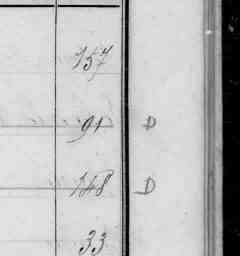 157
91 D
148 D
33